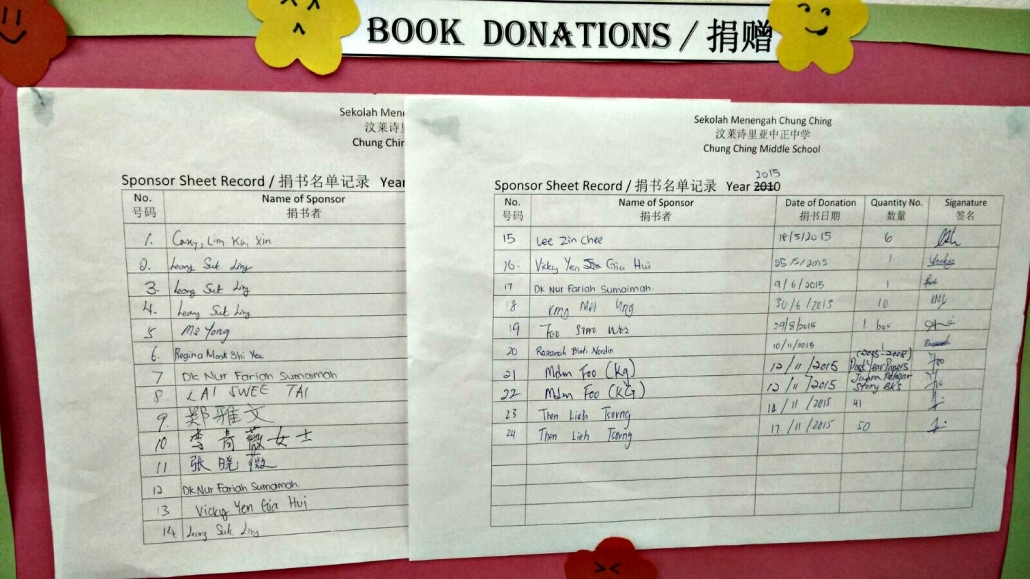 BOOK DONATIONS / 捐赠
Sekolah Mene
汶莱诗里
Chung Chin
Sponsor Sheet Record / 捐书名单记录 Year
No. Name of Sponsor
号码 捐书者
1. Lim Ka Xin
2. Leong Suk Ling
3. Leong Suk Ling
4. Leong Suk Ling
5 Ms Yong
6. Regina Mook Shi Yee
7 Dk Nur Fariah Sumaimah
8 LAI SWEE TAI
9 郑雅文
10 李青薇女士
11 张晓薇
12 Dk Nur Fariah Sumaimah
13 Vicky Yen Gia Hui
14 Leong Suk Ling
Sekolah Menengah Chung Ching
汶莱诗里亚中正中学
Chung Ching Middle School
2015
Sponsor Sheet Record / 捐书名单记录 Year 2010
No. Name of Sponsor Date of Donation Quantity No. Siganature
号码 捐书者 捐书日期 数量 签名
15 Lee Zin Chee 18/5/2015 6
16. Vicky Yen Gia Hui 25/5/2015 1
17 Dk Nur Fariah Sumaimah. 9/6/2015 1
18 30/6/2015 10
19 29/8/2015 1 box
20 Rosanah Binti Nordin 10/11/2015
21 Mdm Foo (Kg) 12/11/2015 (2005-2008) Past Year Papers
22 Mdm Foo (KG) 12/11/2015 Story BKS
23 Then Lieh Tsorng 12/11/2015 41
24 Then Lieh Tsorng 17/11/2015 50